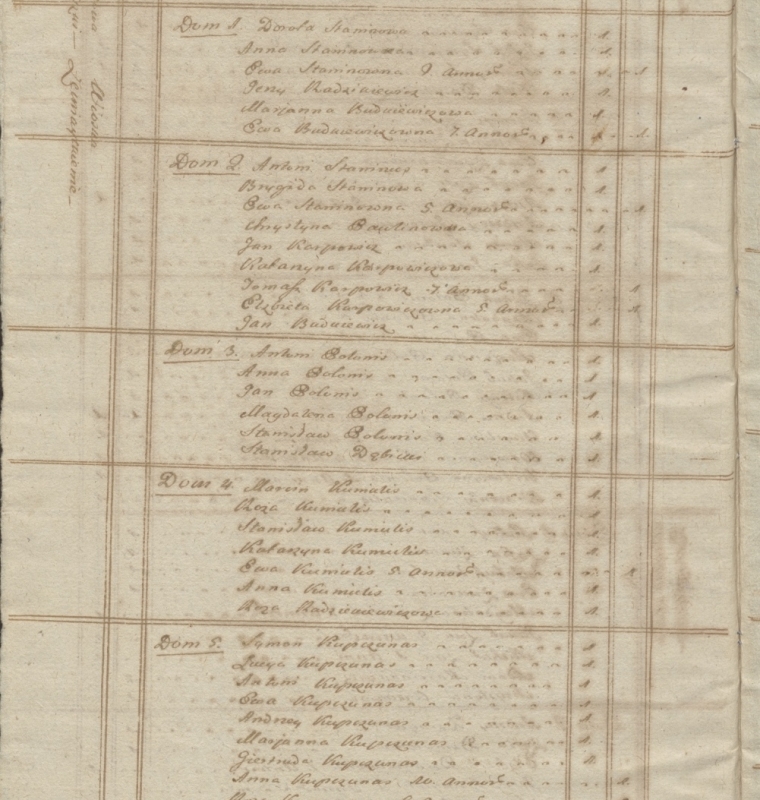 Dom 1. Dorota Staninowa 1.
Anna Staninowna 1.
Ewa Staninowna 9. Annor 1
Jerzy Radziaiewicz 1.
Marjanna Budaiewiczowa 1
Ewa Budaiewiczowna 7. Annor 1.
Dom 2. Antoni Staninas 1
Brygida Staninowa 1.
Ewa Staninowna 5. Annor 1
Chrystyna 1.
Jan Karpowicz 1.
Katarzyna Karpowiczowa 1
Tomasz Karpowicz 7. Annor 1
Elzbieta Karpowiczowna 5 Annor 1
Jan Budaiewicz 1.
Dom 3. Antoni Bolonis 1
Anna Bolonis 1
Jan Bolonis 1.
Magdalena Bolonis 1
Stanisław Bolonis 1
Stanisław Dębicki 1.
Dom 4. Marcin Kumutis 1.
Roza Kumutis 1.
Stanisław Kumutis 1
Katarzyna Kumutis 1.
Ewa Kumutis 5. Annor 1
Anna Kumutis 1.
Roza 1.
Dom 5. Symon Kupczunas 1
Łucya Kupczunas 1.
Antoni Kupczunas 1
Ewa Kupczunas 1
Andrzey Kupczunas 1
Marjanna Kupczunas 1
Giertruda Kupczunas 1.
Anna Kupczunas 10. Annor 1.